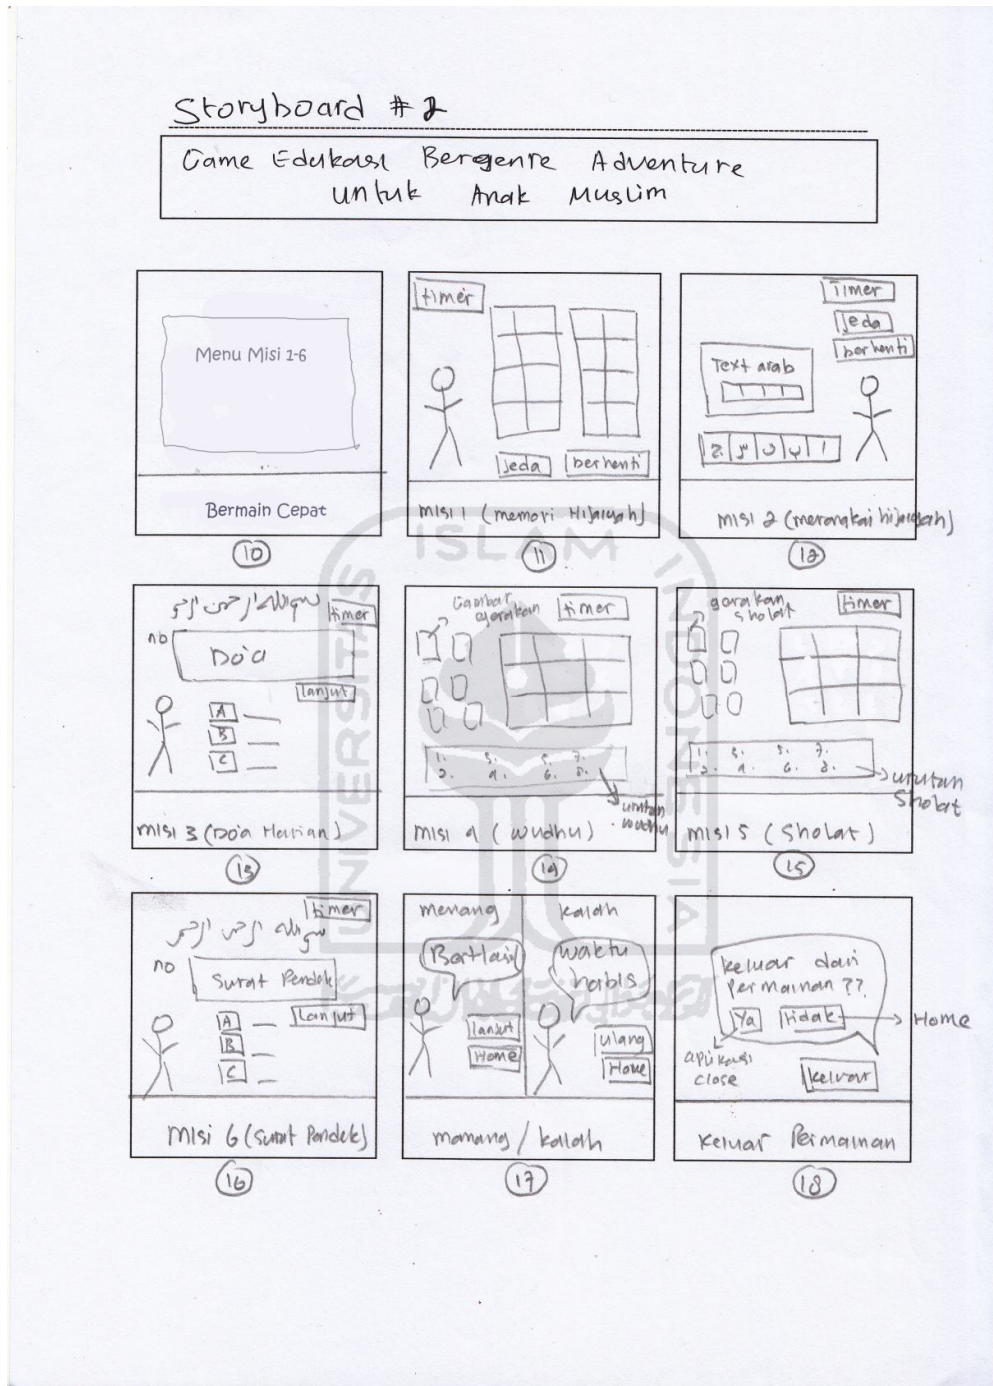 Storyboard #2
Game Edukasi Bergenre Adventure
untuk Anak Muslim
Menu Misi 1-6
...
Bermain Cepat
10
timer
jeda
berhenti
Misi 1 (memori Hijaiyah)
11
Timer
jeda
berhenti
Text arab
Misi 2 (merangkai hijaiyah)
12
timer
no
Do'a
lanjut
A
B
C
Misi 3 (Do'a Harian)
13
Gambar
gerakan
timer
1. 3. 5. 7.
2. 4. 6. 8.
urutan
wudhu
Misi 4 (wudhu)
14
gerakan
sholat
timer
1. 3. 5. 7.
2. 4. 6. 8.
urutan
Sholat
Misi 5 (Sholat)
15
timer
no
Surat Pendek
Lanjut
A
B
C
Misi 6 (Surat Pendek)
16
menang
kalah
Berhasil
waktu
habis
lanjut
Home
ulang
Home
menang / kalah
17
keluar dari
permainan ??
Ya
tidak
Home
aplikasi
close
keluar
Keluar Permainan
18
UNIVERSITAS ISLAM INDONESIA